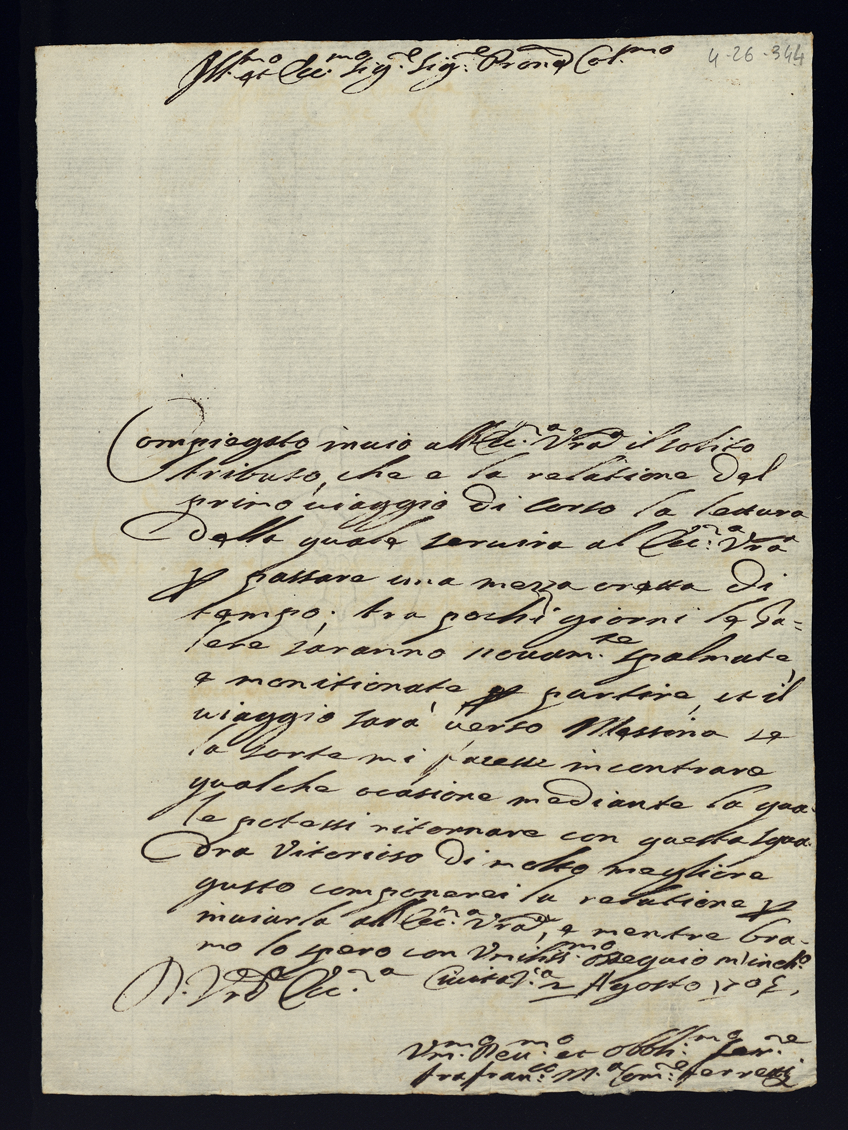 Ill.mo et Ecc.mo Sig.e Sig.e Pron.e Col.mo
4-26-344
Compiegato inuio all'Ecc.za Vra il solito
tributo, che e la relatione del
primo uiaggio di corso la lettura
della quale seruira al Ecc.za Vra
p passare una mezza oretta di
tempo; tra pochi giorni le Ga=
lere saranno nouam.te spalmate,
e monitionate p partire, et il
uiaggio sarà uerso Messina se
la sorte mi facesse incontrare
qualche ocasione mediante la qua-
le potessi ritornare con questa squa-
dra Vitorioso di molto megliore
gusto componerei la relatione p
inuiarla all'Ecc.za Vra, e mentre bra-
mo lo spero con Vmiliss.mo ossequio m'inch.o
D. Vra Ecc.za Ciuita V.a 2 Agosto
Vm.mo Deu.mo et Obbli.mo Ser.re
fra fran.co M.a Com.e ferretti